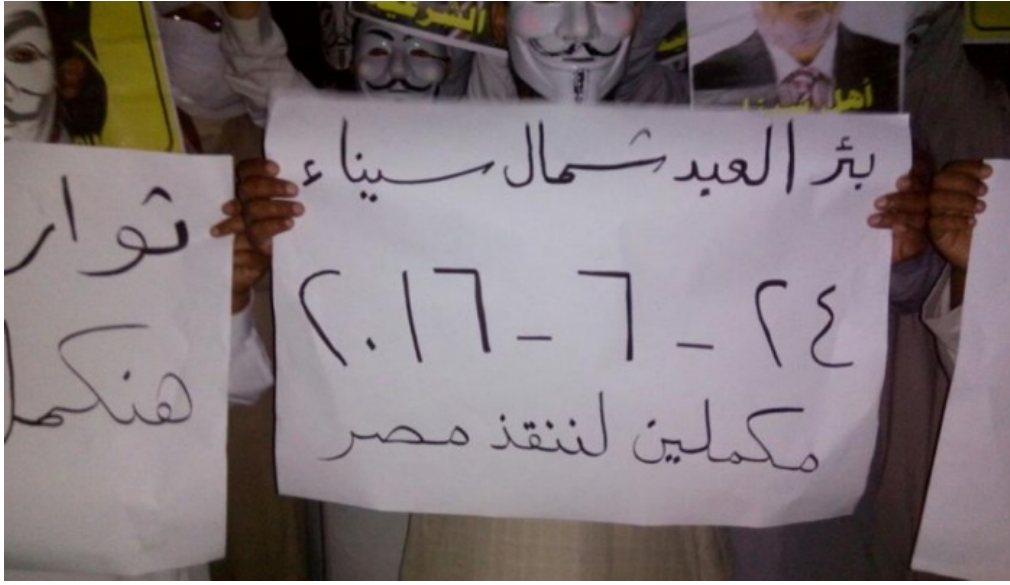 الشرعية
أهل
بئر العبد شمال سيناء
٢٤ - ٦ - ٢٠١٦
مكملين لننقذ مصر
ثوار
هنكمل